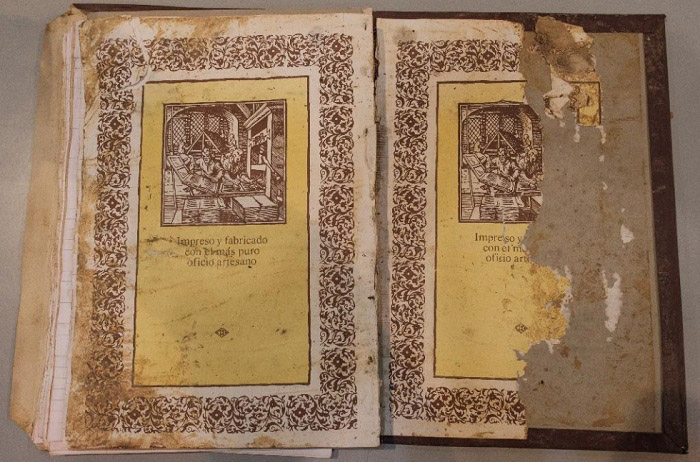 Impreso y fabricado
con el más puro
oficio artesano
Impreso y
con el
ofisio